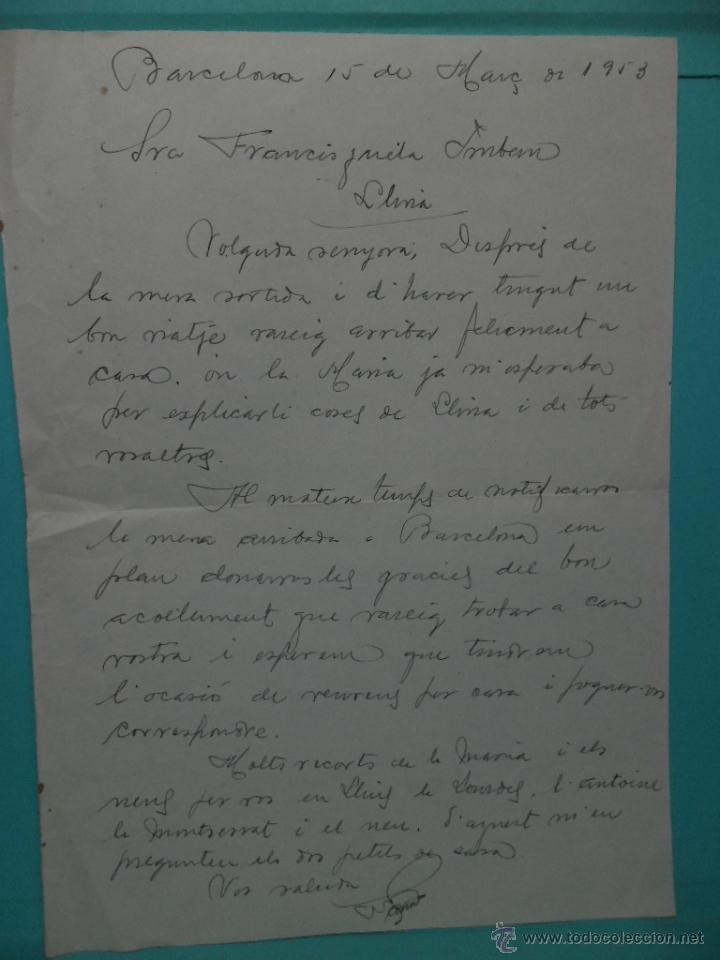 Barcelona 15 de Març de 1953
Sra Francisqueta
Llinà
Volguda senyora, Després de
la meva sortida i d'haver tingut un
bon viatje vareig arribar felicment a
casa. on la Maria ja m'esperaba
per explicarli coses de Llinà i de tots
vosaltres.
Al mateix temps de notificarvos
la meva arribada a Barcelona em
plau donarvosles gracies del bon
acolliment que vareig trobar a casa
vostra i esperem que tindrem
l'ocasió de veureus per casa i poguer-vos
correspondre.
Molts recorts de la Maria i els
nens per vos en Lluis la Lourdes, l'antoine
la Montserrat i el nen. d'aquest m'en
pregunten els dos petits de casa
Vos saluda
www.todocoleccion.net